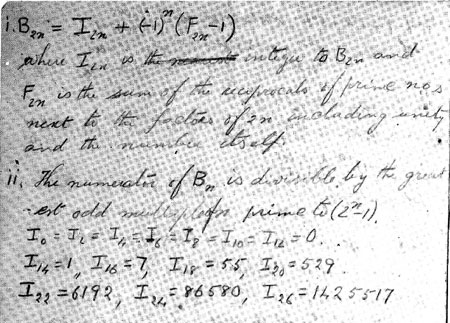 i. B₂ₙ = I₂ₙ + (-1)ⁿ (F₂ₙ - 1)
where I₂ₙ is the nearest integer to B₂ₙ and
F₂ₙ is the sum of the reciprocals of prime nos
next to the factors of 2n including unity
and the number itself.
ii. The numerator of Bₙ is divisible by the great
-est odd multiple of n prime to (2ⁿ-1).
I₀ = I₂ = I₄ = I₆ = I₈ = I₁₀ = I₁₂ = 0.
I₁₄ = 1, I₁₆ = 7, I₁₈ = 55, I₂₀ = 529.
I₂₂ = 6192, I₂₄ = 86580, I₂₆ = 1425517